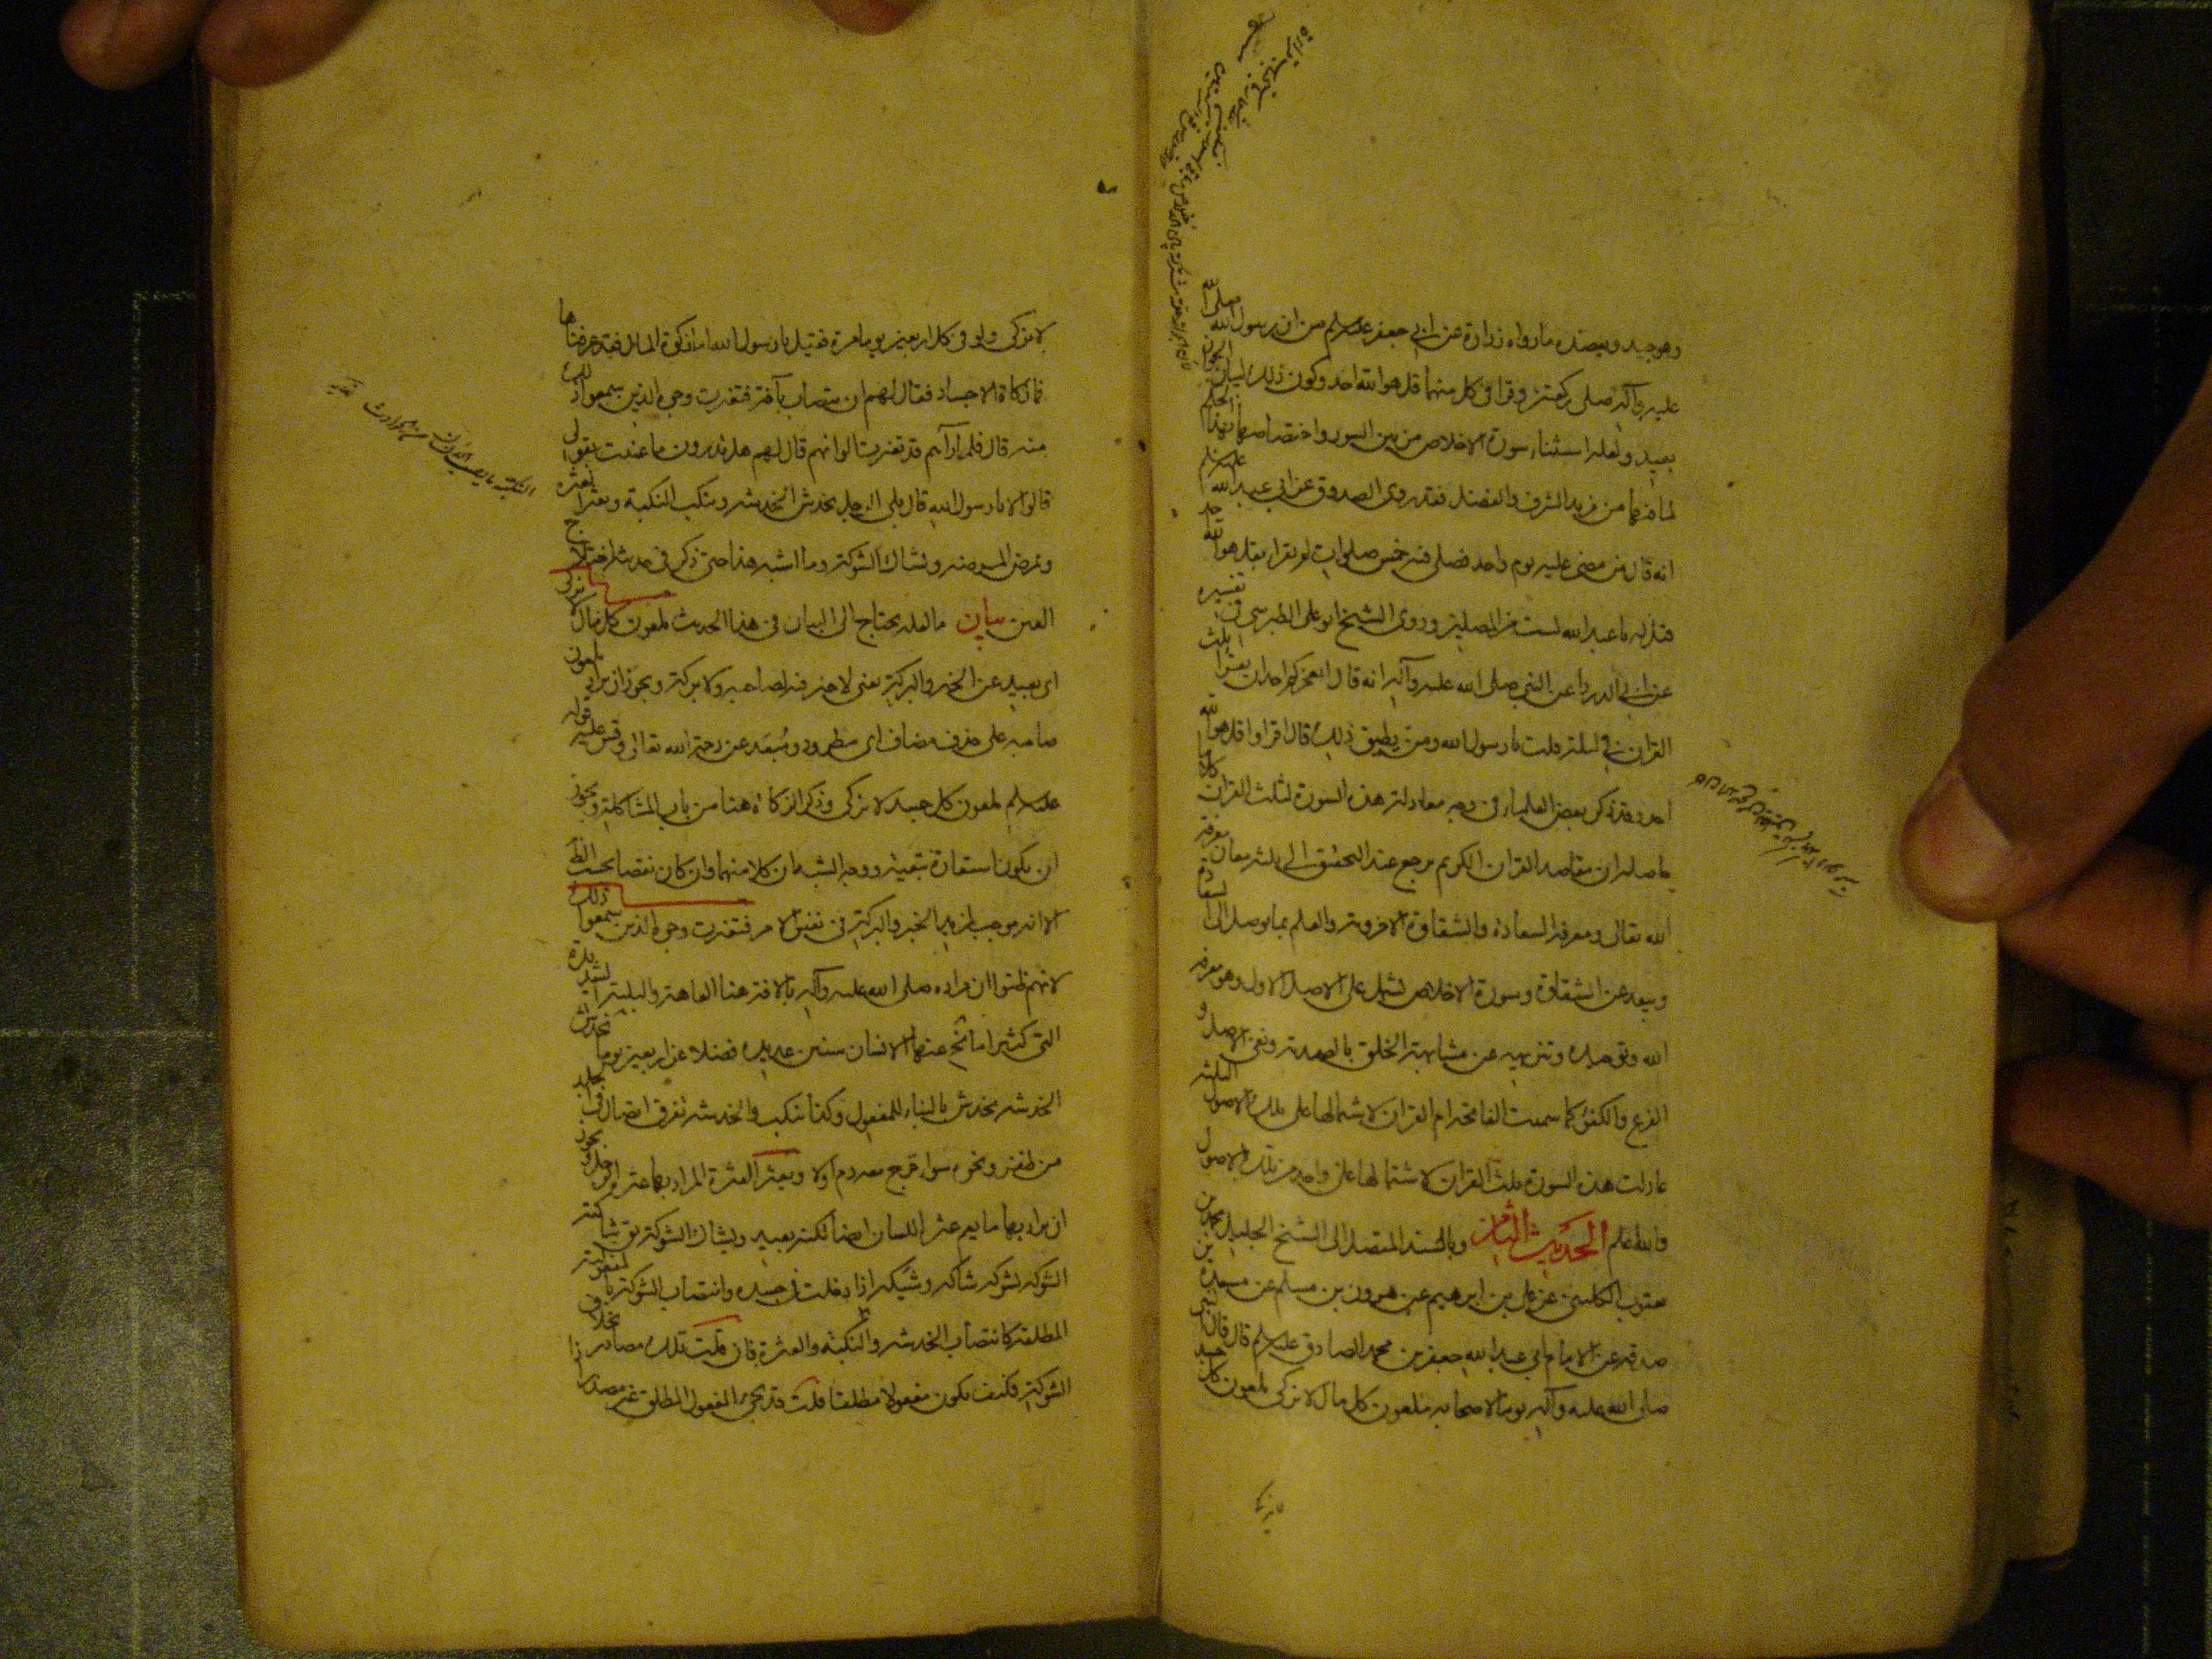 وهو جيد ويعضده ما رواه زرارة عن ابي جعفر عليه السلم من ان رسول الله صلى الله
عليه وآله صلى ركعتين وقرا في كل منهما قل هو الله احد وكون ذلك لبيان الجواز
بعيد ولعل استثناء سورة الاخلاص من بين السور واختصاصها بهذا الحكم
لما فيها من مزيد الشرف والفضل فقد روى الصدوق عن ابي عبد الله عليه السلم
انه قال من مضى عليه يوم واحد فصلى فيه خمس صلوات لم يقرا بقل هو الله احد
قيل له يا عبد الله لست من المصلين وروى الشيخ ابو على الطبرسي في تفسيره
عن ابي الدرداء عن النبي صلى الله عليه وآله انه قال ايعجز احدكم ان يقرا ثلث
القران في ليلة قلت يا رسول الله ومن يطيق ذلك قال اقراوا قل هو الله
احد وقد ذكر بعض العلماء في وجه معادلة هذه السورة لثلث القران كلاما
حاصله ان مقاصد القران الكريم يرجع عند التحقيق الى ثلثة معان معرفة
الله تعالى ومعرفة السعادة والشقاوة الاخروية والعلم بما يوصل الى السعادة
ويبعد عن الشقاوة وسورة الاخلاص تشتمل على الاصل الاول وهو معرفة
الله وتوحيده وتنزيهه عن مشابهة الخلق بالصمدية ونفي الاصل و
الفرع والكفؤ كما سميت الفاتحة ام القران لاشتمالها على تلك الاصول الثلثة
عادلت هذه السورة ثلث القران لاشتمالها على واحد من تلك الاصول
والله اعلم الحديث الثامن وبالسند المتصل الى الشيخ الجليل محمد بن
يعقوب الكليني عن علي بن ابرهيم عن هرون بن مسلم عن مسعدة بن
صدقة عن الامام ابي عبد الله جعفر بن محمد الصادق عليه السلم قال قال النبي
صلى الله عليه وآله يوما لاصحابه ملعون كل مال لا يزكى ملعون كل جسد
لا يزكى ولو في كل اربعين يوما مرة فقيل يا رسول الله اما زكوة المال فقد عرفناها
فما زكاة الاجساد فقال لهم ان تصاب بآفة فتغيرت وجوه الذين سمعوا ذلك
منه قال فلما رآهم قد تغيرت الوانهم قال لهم هل تدرون ما عنيت بقولي
قالوا لا يا رسول الله قال بلى الرجل يخدش الخدشة وينكب النكبة ويعثر العثرة
ويمرض المرضة ويشاك الشوكة وما اشبه هذا حتى ذكر في حديثه اختلاج
العين بيان ما لعله يحتاج الى البيان في هذا الحديث ملعون كل مال لا يزكى
اى بعيد عن الخير والبركة يعني لا خير فيه لصاحبه ولا بركة ويجوز ان يراد ملعون
صاحبه على حذف مضاف اى مطرود ومبعد عن رحمة الله تعالى وقس عليه قوله
عليه السلم ملعون كل جسد لا يزكى وذكر الزكاة هنا من باب المشاكلة ويجوز
ان يكون استعارة تبعية ووجه الشبه ان كلا منهما وان كان نقصا بحسب الظ
الا انه موجب لمزيد الخير والبركة في نفس الامر فتغيرت وجوه الذين سمعوا ذلك
لانهم ظنوا ان مراده صلى الله عليه وآله بالافة هنا العاهة والبلية الشديدة
التي كثيرا ما يخ عنها الانسان سنين عديدة فضلا عن اربعين يوما يخدش
الخدشة يخدش بالبناء للمفعول وكذا ينكب والخدشة تفرق اتصال في الجلد
من ظفر ونحوه سواء خرج معه دم اولا ويعثر العثرة المراد بها عثرة الرجل ويجوز
ان يراد بها ما يعم عثرة اللسان ايضا لكنه بعيد ويشاك الشوكة يق شاكته
الشوكة تشوكه شاكة وشيكة اذا دخلت في جسده وانتصاب الشوكة بالمفعولية
المطلقة كانتصاب الخدشة والنكبة والعثرة فان قلت تلك مصادر بخلاف
الشوكة فكيف يكون مفعولا مطلقا قلت قد يجئ المفعول المطلق غير مصدر اذا